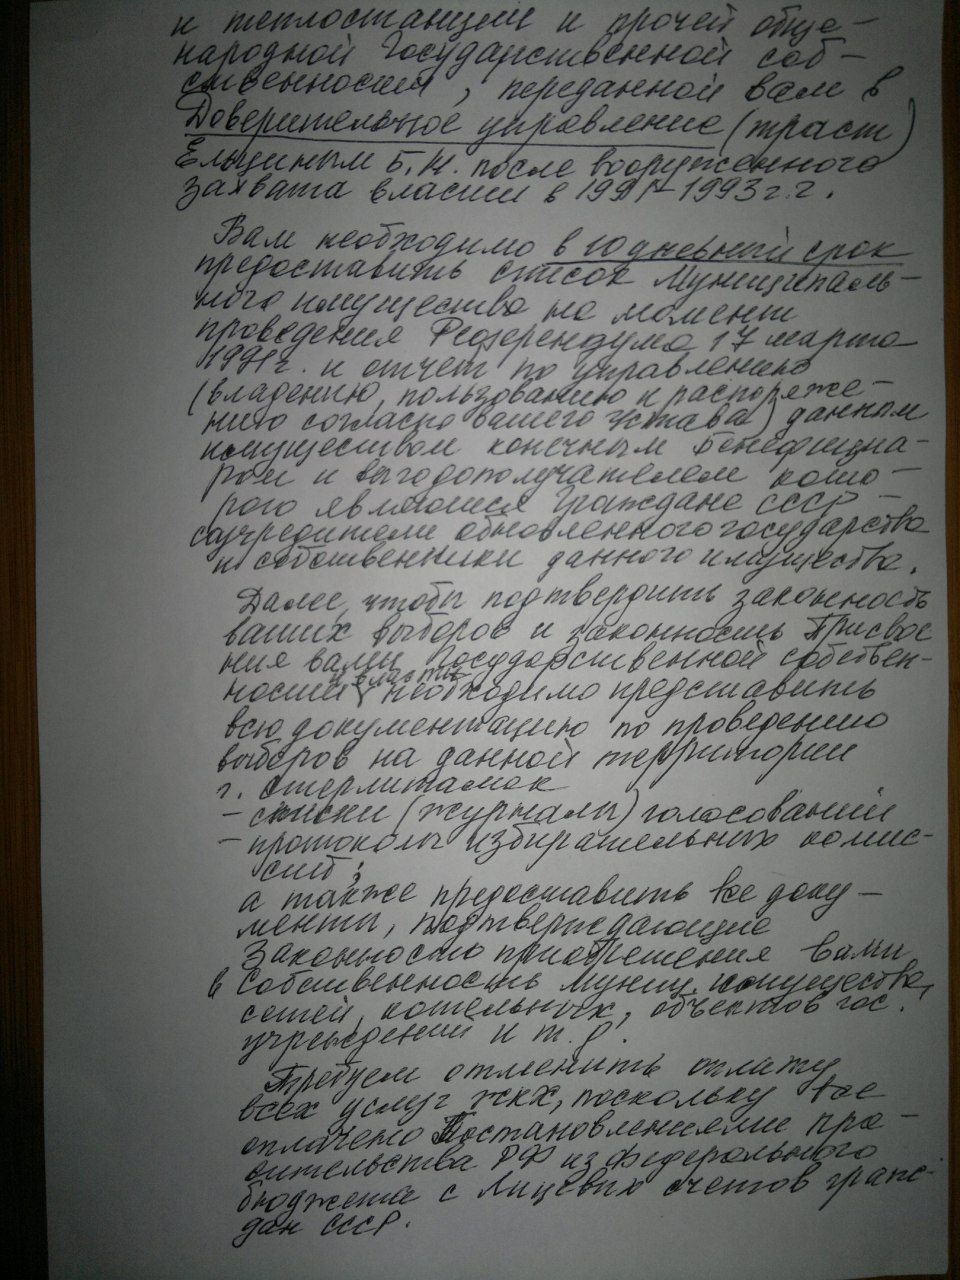 и теплостанций и прочей обще-
народной Государственной соб-
ственности, переданной вам в
Доверительное управление (траст)
Ельциным Б.Н. после вооруженного
захвата власти в 1991-1993 г.г.
Вам необходимо в 10 дневный срок
предоставить список Муниципаль-
ного имущества на момент
проведения Референдума 17 марта
1991 г. и отчет по управлению
(владению, пользованию и распоряже-
нию согласно вашего Устава) данным
имуществом конечным бенефициа-
ром и выгодополучателем кото-
рого являются Граждане СССР -
соучредители обновленного государства
и собственники данного имущества.
Далее, чтобы подтвердить законность
ваших выборов и законность Присвое
ния вами Государственной собствен-
ности и власти необходимо представить
всю документацию по проведению
выборов на данной территории
г. Стерлитамак
- списки (журналы) голосований
- протоколы избирательных комис-
сий;
а также предоставить все доку-
менты, подтверждающие
Законностью приобретения вами
в Собственность Муниц. имущества,
сетей, котельных, объектов гос.
учреждений и т.д.
Требуем отменить оплату
всех услуг ЖКХ, поскольку все
оплачено Постановлениями пра-
вительства РФ из федерального
бюджета с Лицевых счетов граж-
дан СССР.